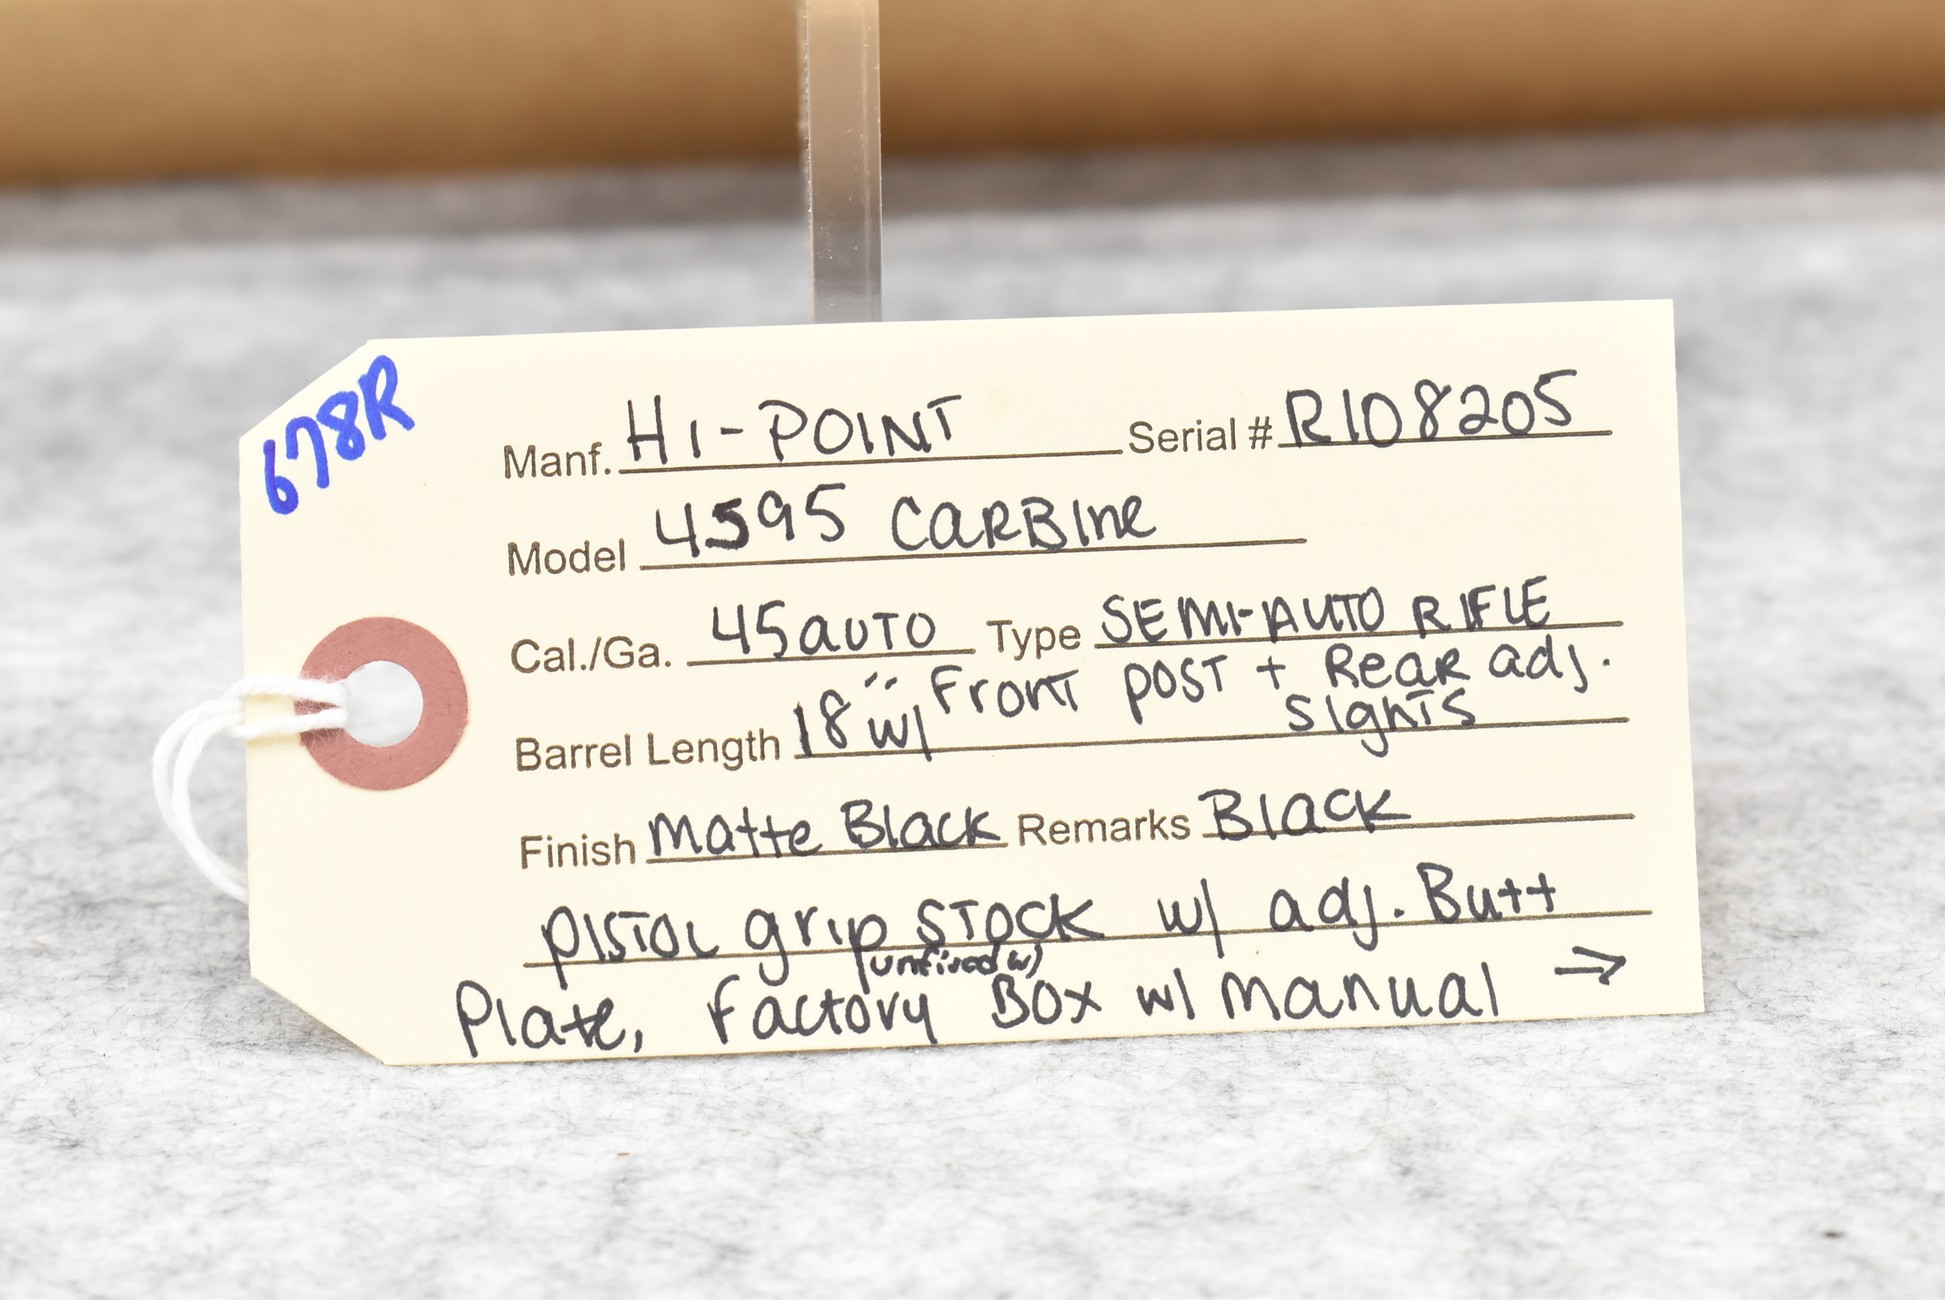 678R
Manf. HI-POINT Serial # R108205
Model 4595 CARBINE
Cal./Ga. 45 auto Type SEMI-AUTO RIFLE
Barrel Length 18" w/ Front post + Rear adj.
sights
Finish Matte Black Remarks Black
pistol grip stock w/ adj. Butt
(unfired w/)
Plate, factory Box w/ manual →